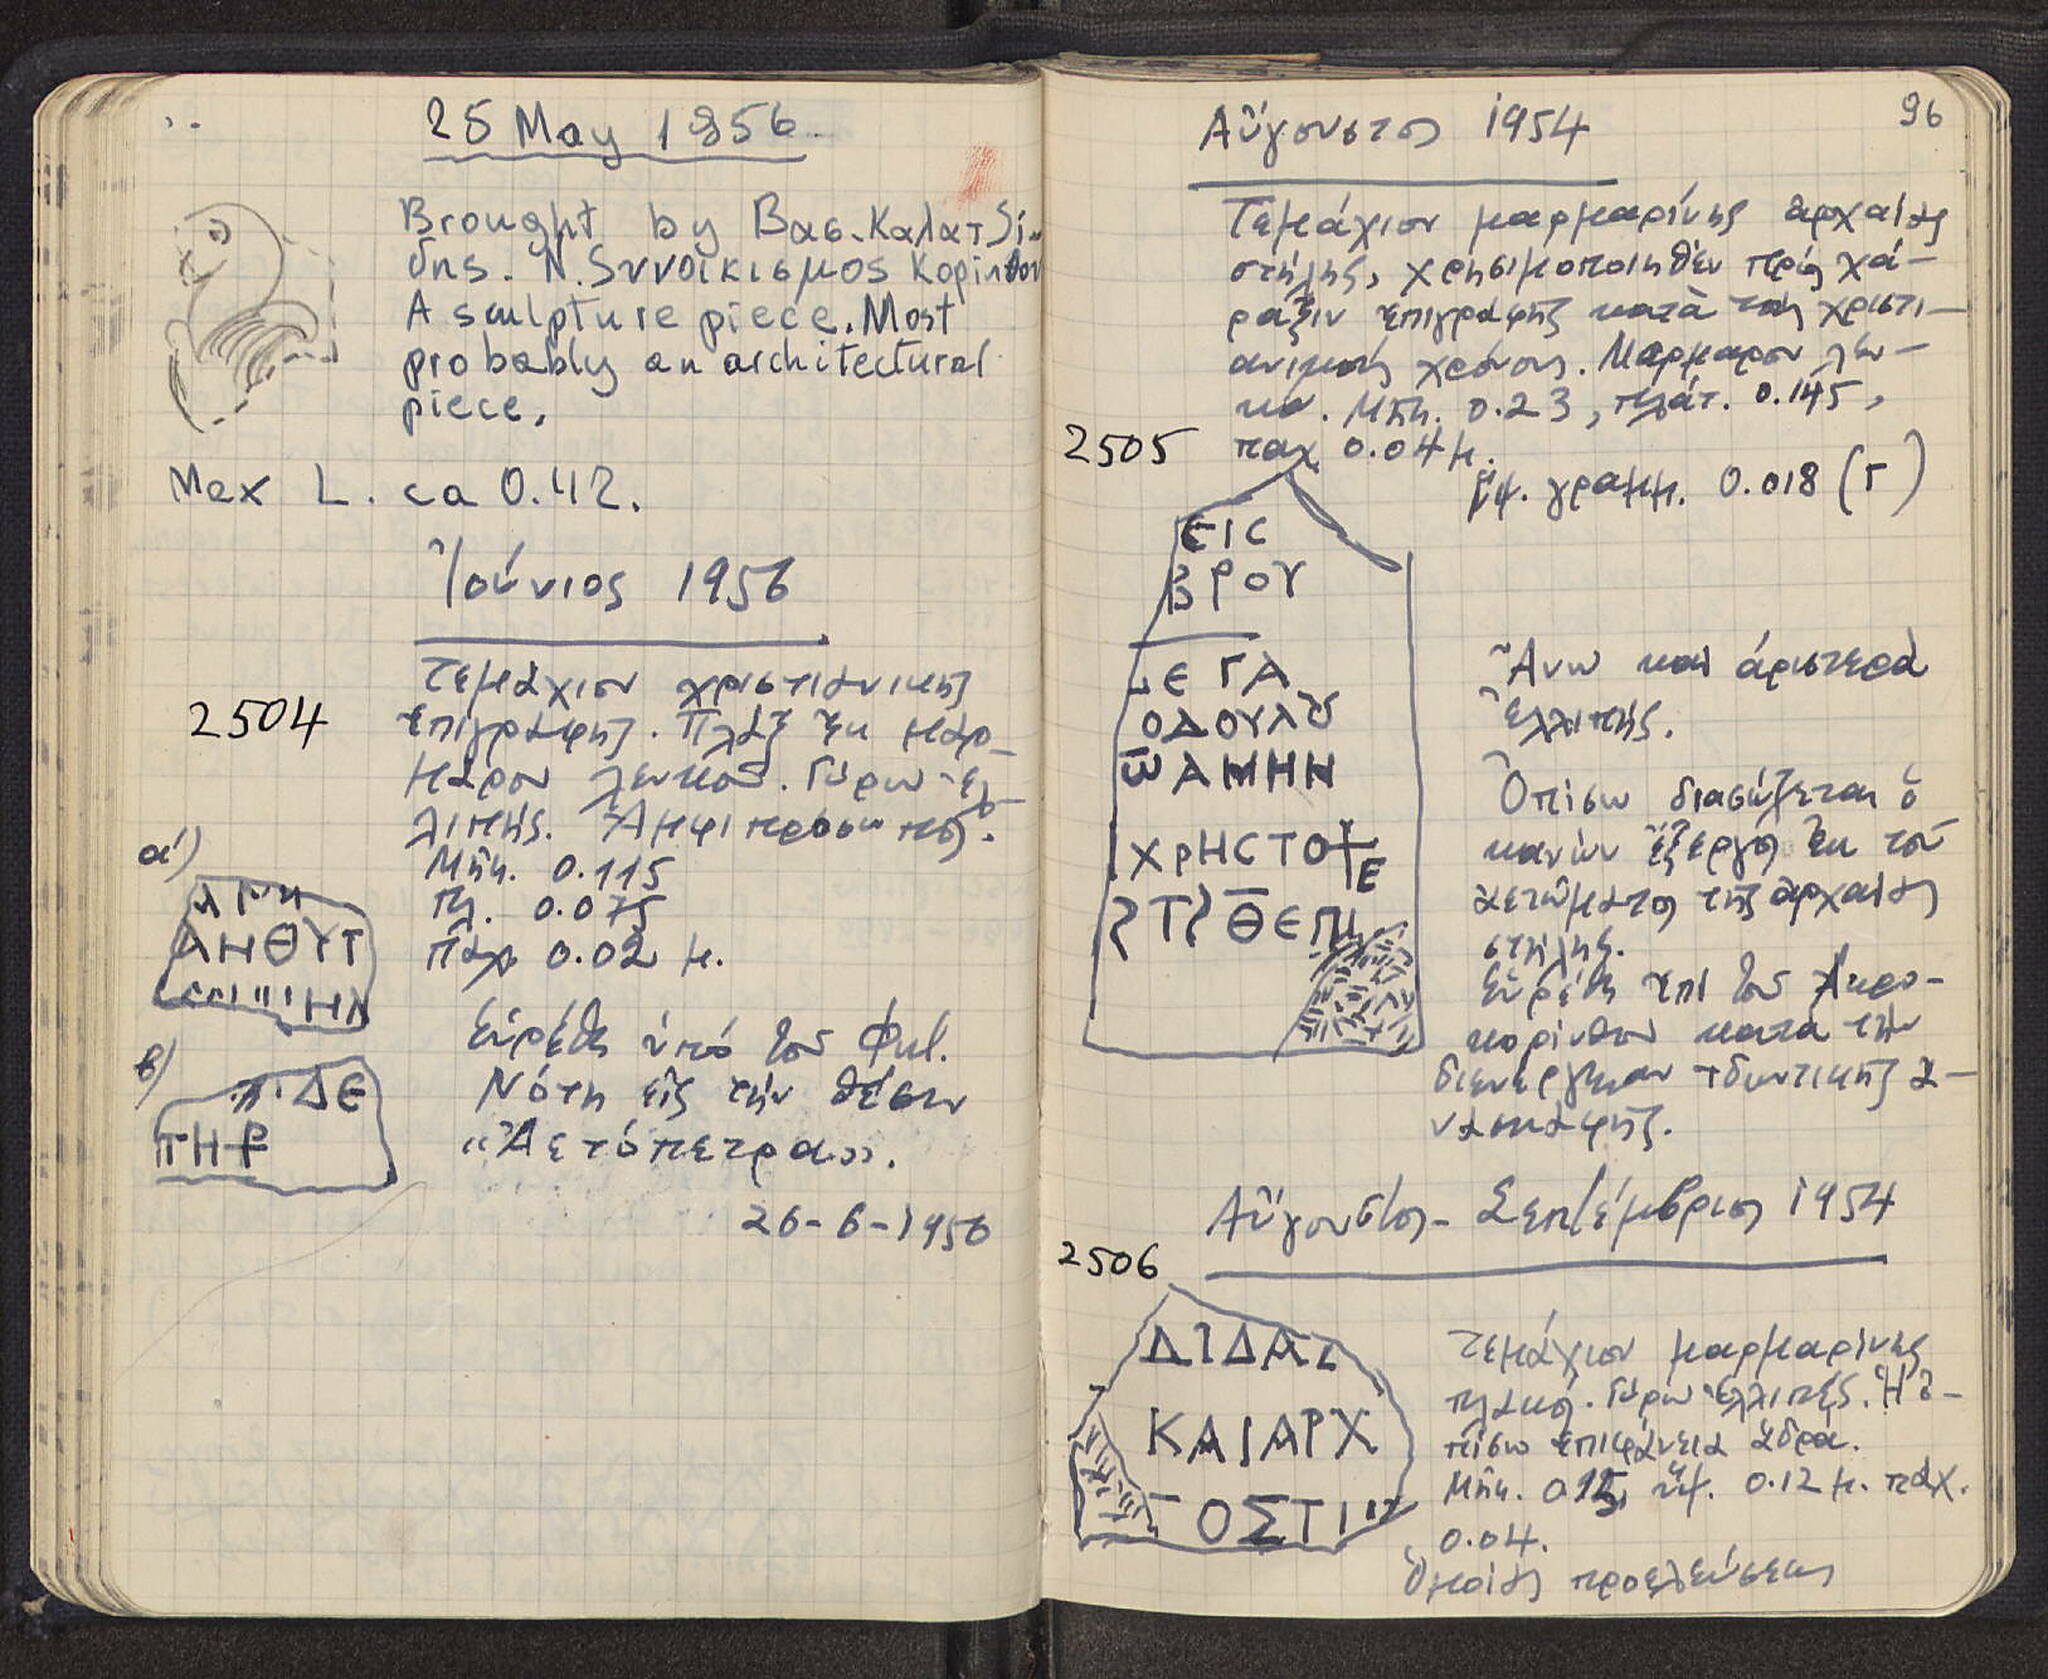 25 May 1956.
Brought by Βας. Καλατζί-
δης. Ν. Συνοικισμος Κορίνθου
A sculpture piece. Most
probably an architectural
piece.
Max L. ca 0.42.
Ἰούνιος 1956
2504
Τεμάχιον χριστιανικῆς
ἐπιγραφῆς. Πλάξ ἐκ μαρ-
μάρου λευκοῦ. Γύρω ἐλ-
λιπής. Ἀμφιπρόσωπος.
Μῆκ. 0.115
Πλ. 0.075
Πάχ 0.02 μ.
α')
ΑΗΘΥΤ
β)
ΔΕ
ΤΗΡ
Εὑρέθη ὑπό τοῦ Φυλ.
Νότη εἰς τήν θέσιν
«Ἀετόπετρα».
26-6-1956
96
Αὔγουστος 1954
Τεμάχιον μαρμαρίνης ἀρχαίας
στήλης, χρησιμοποιηθέν πρός χά-
ραξιν ἐπιγραφῆς κατὰ τούς χριστι-
ανικούς χρόνους. Μάρμαρον λευ-
κό. Μῆκ. 0.23, πλάτ. 0.145,
2505
παχ. 0.04 μ.
ὕψ. γραμμ. 0.018 (Γ)
ΕΙС
ΒΡΟΥ
Ε ΓΑ
ΟΔΟΥΛȢ
ΑΜΗΝ
ΧΡΗСΤΟ
Ε
Τ Θ̅ΕΠ
Ἄνω καί ἀριστερά
ἐλλιπής.
Ὀπίσω διασώζεται ὁ
κανών ἔξεργος ἐκ τοῦ
ἀετώματος τῆς ἀρχαίας
στήλης.
Εὑρέθη ἐπί τοῦ Ἀκρο-
κορίνθου κατά τήν
διενέργειαν ἰδιωτικῆς ἀ-
νασκαφῆς.
Αὔγουστος - Σεπτέμβριος 1954
2506
ΔΙΔΑΣ
ΚΑΙΑΡΧ
ΓΟΣΤΙ
Τεμάχιον μαρμαρίνης
πλακός. Γύρω ἐλλιπές. Ἡ ὀ-
πίσω ἐπιφάνεια ἁδρά.
Μῆκ. 0.15, ὕψ. 0.12 μ. πάχ.
0.04.
Ὁμοίας προελεύσεως